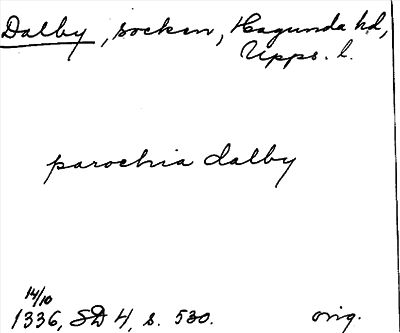 Dalby, socken, Hagunda hd,
Upps. l.
parochia dalby
14/10
1336, SD 4, s. 530. orig.